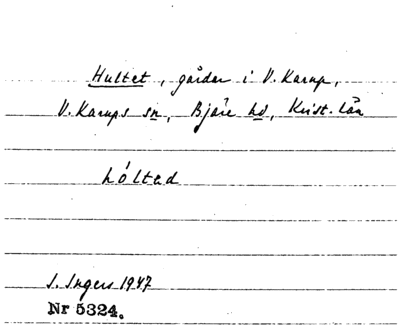 Hultet, gårdar i V. Karup,
V. Karups sn, Bjäre hd, Krist. län
hóltad
I. Ingers 1947
Nr 5324.